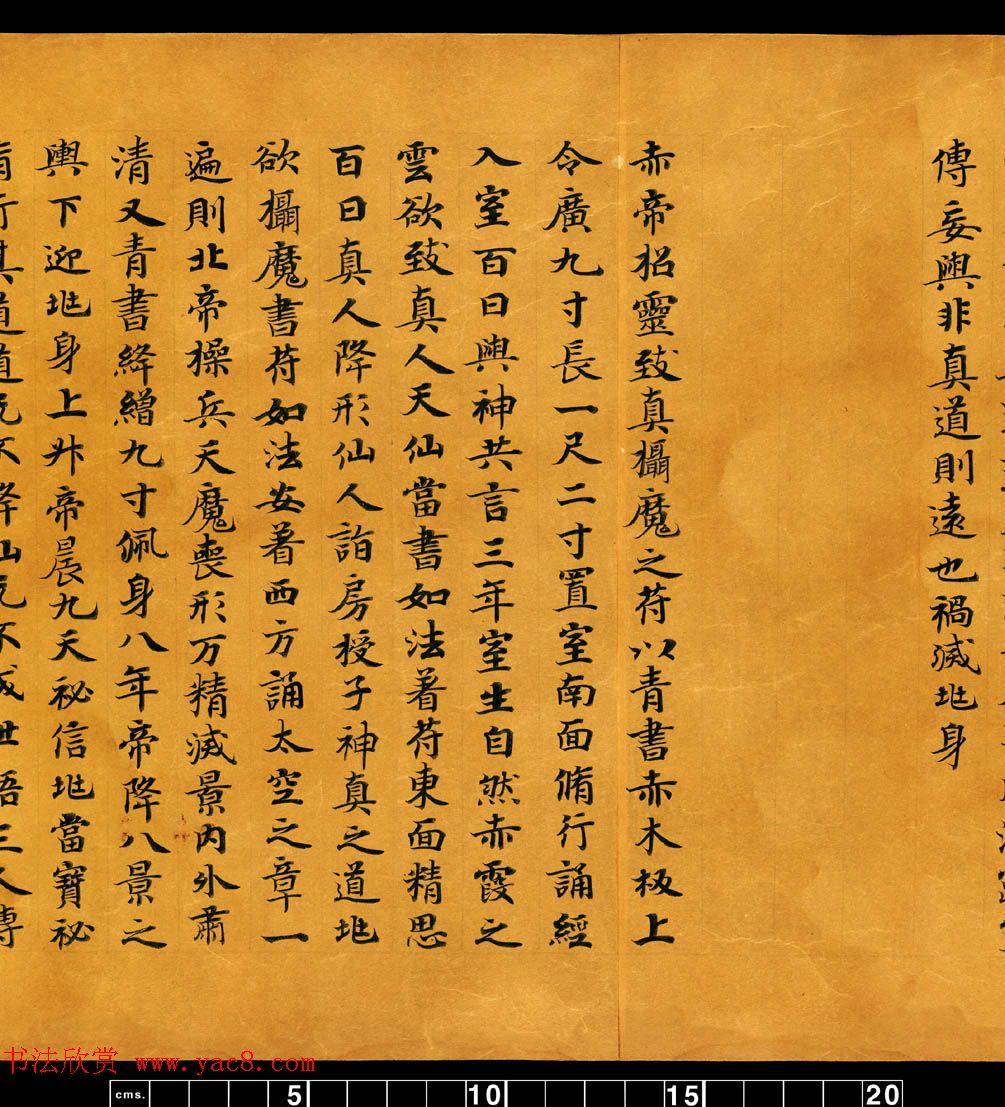 傳妄與非真道則遠也禍滅兆身
赤帝招靈致真攝魔之苻以青書赤木板上
令廣九寸長一尺二寸置室南面脩行誦經
入室百日與神共言三年室生自然赤霞之
雲欲致真人天仙當書如法著苻東面精思
百日真人降形仙人詣房授子神真之道兆
欲攝魔書苻如法安著西方誦太空之章一
遍則北帝操兵天魔喪形万精滅景內外肅
清又青書絳繒九寸佩身八年帝降八景之
輿下迎兆身上升帝晨九天祕信兆當寶祕
书法欣赏 www.yac8.com
cms. 5 10 15 20